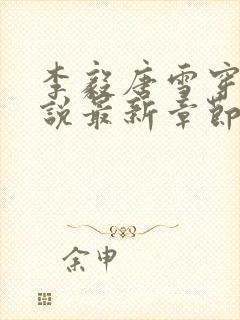 李毅唐雪穿
说最新章节
余申